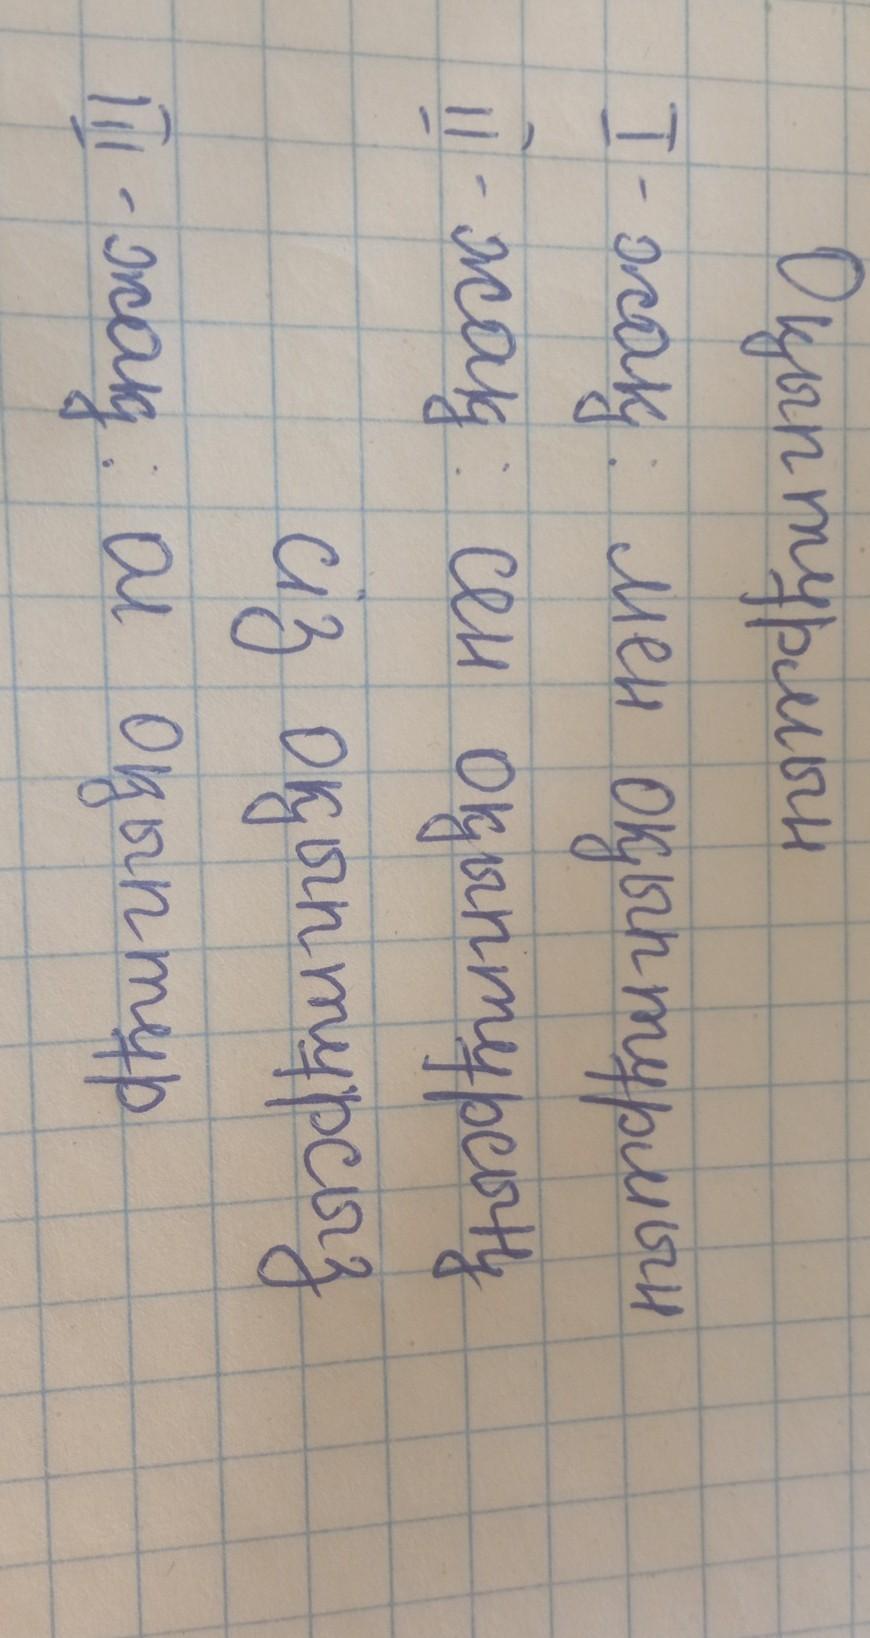 Оқып тұрмын
I - жақ: мен оқып тұрмын
II - жақ: сен оқып тұрсың
сіз оқып тұрсыз
III - жақ: ол оқып тұр